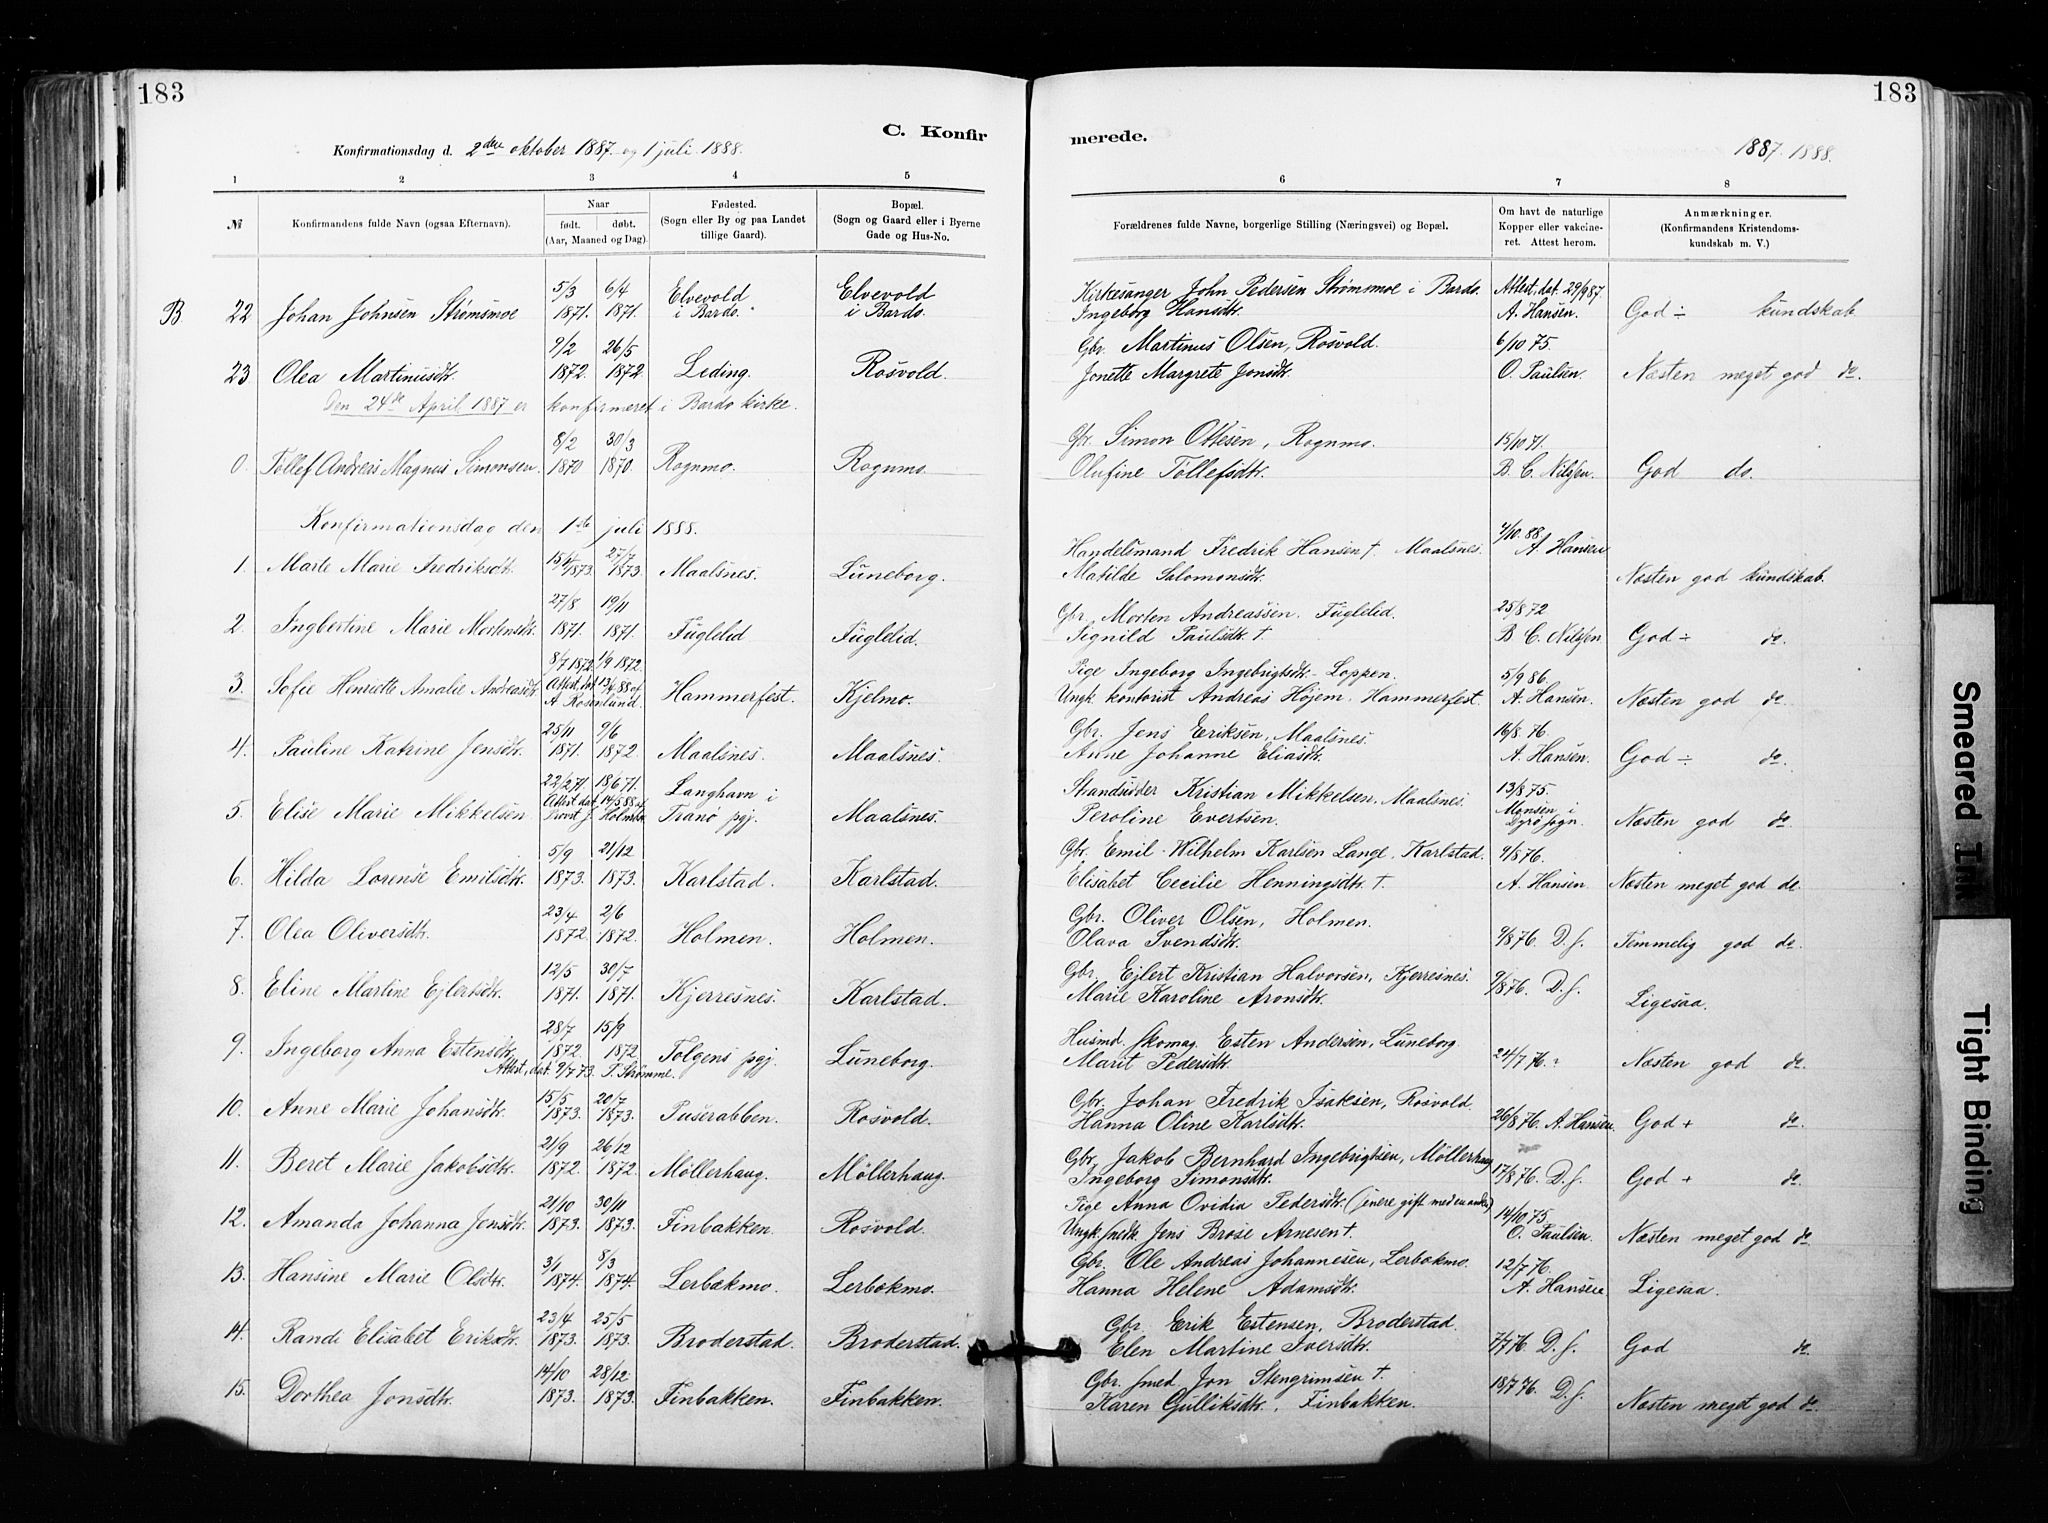 183
183
C. Konfir
merede.
Konfirmationsdag d. 2den oktober 1887. og 1 juli 1888.
1887. 1888.
1 2 3 4 5 6 7 8
№
Konfirmandens fulde Navn (ogsaa Efternavn).
Naar
født. døbt.
(Aar, Maaned og Dag)
Fødested.
(Sogn eller By og paa Landet
tillige Gaard).
Bopæl.
(Sogn og Gaard eller i Byerne
Gade og Hus-No.
Forældrenes fulde Navne, borgerlige Stilling (Næringsvei) og Bopæl.
Om havt de naturlige
Kopper eller vakcine-
ret. Attest herom.
Anmærkninger.
(Konfirmandens Kristendoms-
kundskab m. V.)
5/3 6/4 Elvevold Elvevold Kirkesanger John Pedersen Strømsmoe i Bardo. Attest, dat. 29/9 87.
B 22 Johan Johnsen Strømsmoe 1871. 1871. i Bardo. i Bardo. Ingeborg Hansdtr. A. Hansen. God ÷ kundskab
9/2 26/5 Gbr. Martinus Olsen, Rosvold. 6/10 75.
23 Olea Martinusdtr. 1872. 1872. Leding. Rosvold. Jonette Margrete Jonsdtr. O. Paulsen. Næsten meget god do.
Den 24de April 1887 er konfirmeret i Bardo kirke.
8/2 30/3 Gbr. Simon Ottesen, Rognmo. 15/10 71.
0. Tollef Andreas Magnus Simonsen. 1870 1870. Rognmo. Rognmo. Olufine Tollefsdtr. B. C. Nilssen. God do.
Konfirmationsdag den 1ste juli 1888.
15/4 27/7 Handelsmand Fredrik Hansen †. Maalsnes. 4/10 88. A. Hansen
1. Marte Marie Fredriksdtr. 1873. 1873. Maalsnes. Luneborg. Matilde Salomonsdtr. Næsten god kundskab.
27/8 19/11 Gbr. Morten Andreassen. Fuglelid. 25/8 72
2. Ingbertine Marie Mortensdtr. 1871. 1871. Fuglelid Fuglelid. Signild Paulsdtr † B C. Nilssen God ÷ do.
8/7 1872. 1/9 1872. Pige Ingeborg Ingebrigtsdtr. Loppen. 5/9 86.
3. Sofie Henriette Amalie Andreasdtr. Attest, dat 13/4 88 af A Rosenlund. Hammerfest. Kjelmo. Ungk. kontorist Andreas Højem. Hammerfest. A. Hansen. Næsten god do.
25/11 9/6 Gbr. Jens Eriksen, Maalsnes. 16/8 76.
4. Pauline Katrine Jensdtr. 1871. 1872. Maalsnes. Maalsnes. Anne Johanne Eliasdtr. A. Hansen. God ÷ do.
22/2 71. 18/6 71. Langhavn i Strandsidder Kristian Mikkelsen, Maalsnes. 13/8 75.
5. Elise Marie Mikkelsen Attest dat. 14/5 88 af Provst J. Holmboe Tranø pgj. Maalsnes. Peroline Evertsen. Monsen i Dyrø sogn. Næsten god do.
5/9 21/12 Gbr. Emil Wilhelm Karlsen Lange, Karlstad. 4/8 76.
6. Hilda Lorense Emilsdtr. 1873. 1873. Karlstad. Karlstad. Elisabet Cecilie Henningsdtr. †. A. Hansen Næsten meget god do
23/4 2/6 Gbr. Oliver Olsen, Holmen.
7. Olea Oliversdtr. 1872. 1872. Holmen. Holmen. Olava Svendsdtr. 9/8 76. D. s. Temmelig god do.
12/5 30/7 Gbr. Ejlert Kristian Halvorsen, Kjerresnes.
8. Eline Martine Ejlertsdtr. 1871. 1871. Kjerresnes. Karlstad. Marie Karoline Aronsdtr. 9/8 76. D. s. Ligesaa.
28/7 15/9 Husmd. Skomag. Esten Andersen, Luneborg.
9. Ingeborg Anna Estensdtr. 1872. 1872 Tolgens pgj. Luneborg. Marit Pedersdtr. 24/7 76. Næsten god do.
Attest, dat. 9/7 73. P. Strømme.
15/5 20/7 Gbr. Johan Fredrik Isaksen, Rosvold.
10. Anne Marie Johansdtr. 1873. 1873. Puserabben. Rosvold. Hanna Oline Karlsdtr. 26/8 76. A. Hansen. God + do.
21/9 26/12 Gbr. Jakob Bernhard Ingebrigtsen, Møllerhaug
11. Beret Marie Jakobsdtr. 1872. 1872. Møllerhaug. Møllerhaug. Ingeborg Simonsdtr. 17/8 76. D. s. God + do.
21/10 30/11 Pige Anna Ovidia Pedersdtr. (senere gift med en anden) 14/10 75.
12. Amanda Johanna Jensdtr. 1873. 1873. Finbakken. Rosvold. Ungk. smedk Jens Brose Arnesen †. O. Paulsen. Næsten meget god do
3/1 8/3 Gbr. Ole Andreas Johannesen, Lerbækmo. 12/7 76.
13. Hansine Marie Olsdtr. 1874. 1874. Lerbækmo. Lerbækmo. Hanna Helene Adamsdtr. A. Hansen Ligesaa.
23/4 25/5 Gbr. Erik Estensen, Broderstad.
14. Randi Elisabet Eriksdtr. 1873. 1873. Broderstad. Broderstad. Elen Martine Iversdtr. 7/7 76. D. s. God do.
14/10 28/12 Gbr. smed Jon Stengrimsen †.
15. Dorthea Jonsdtr. 1873. 1873. Finbakken. Finbakken. Karen Gulliksdtr., Finbakken. 18/7 76. D. s. Næsten meget god do.
Smeared Ink
Tight Binding